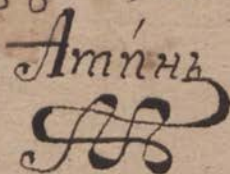 Ати́нь